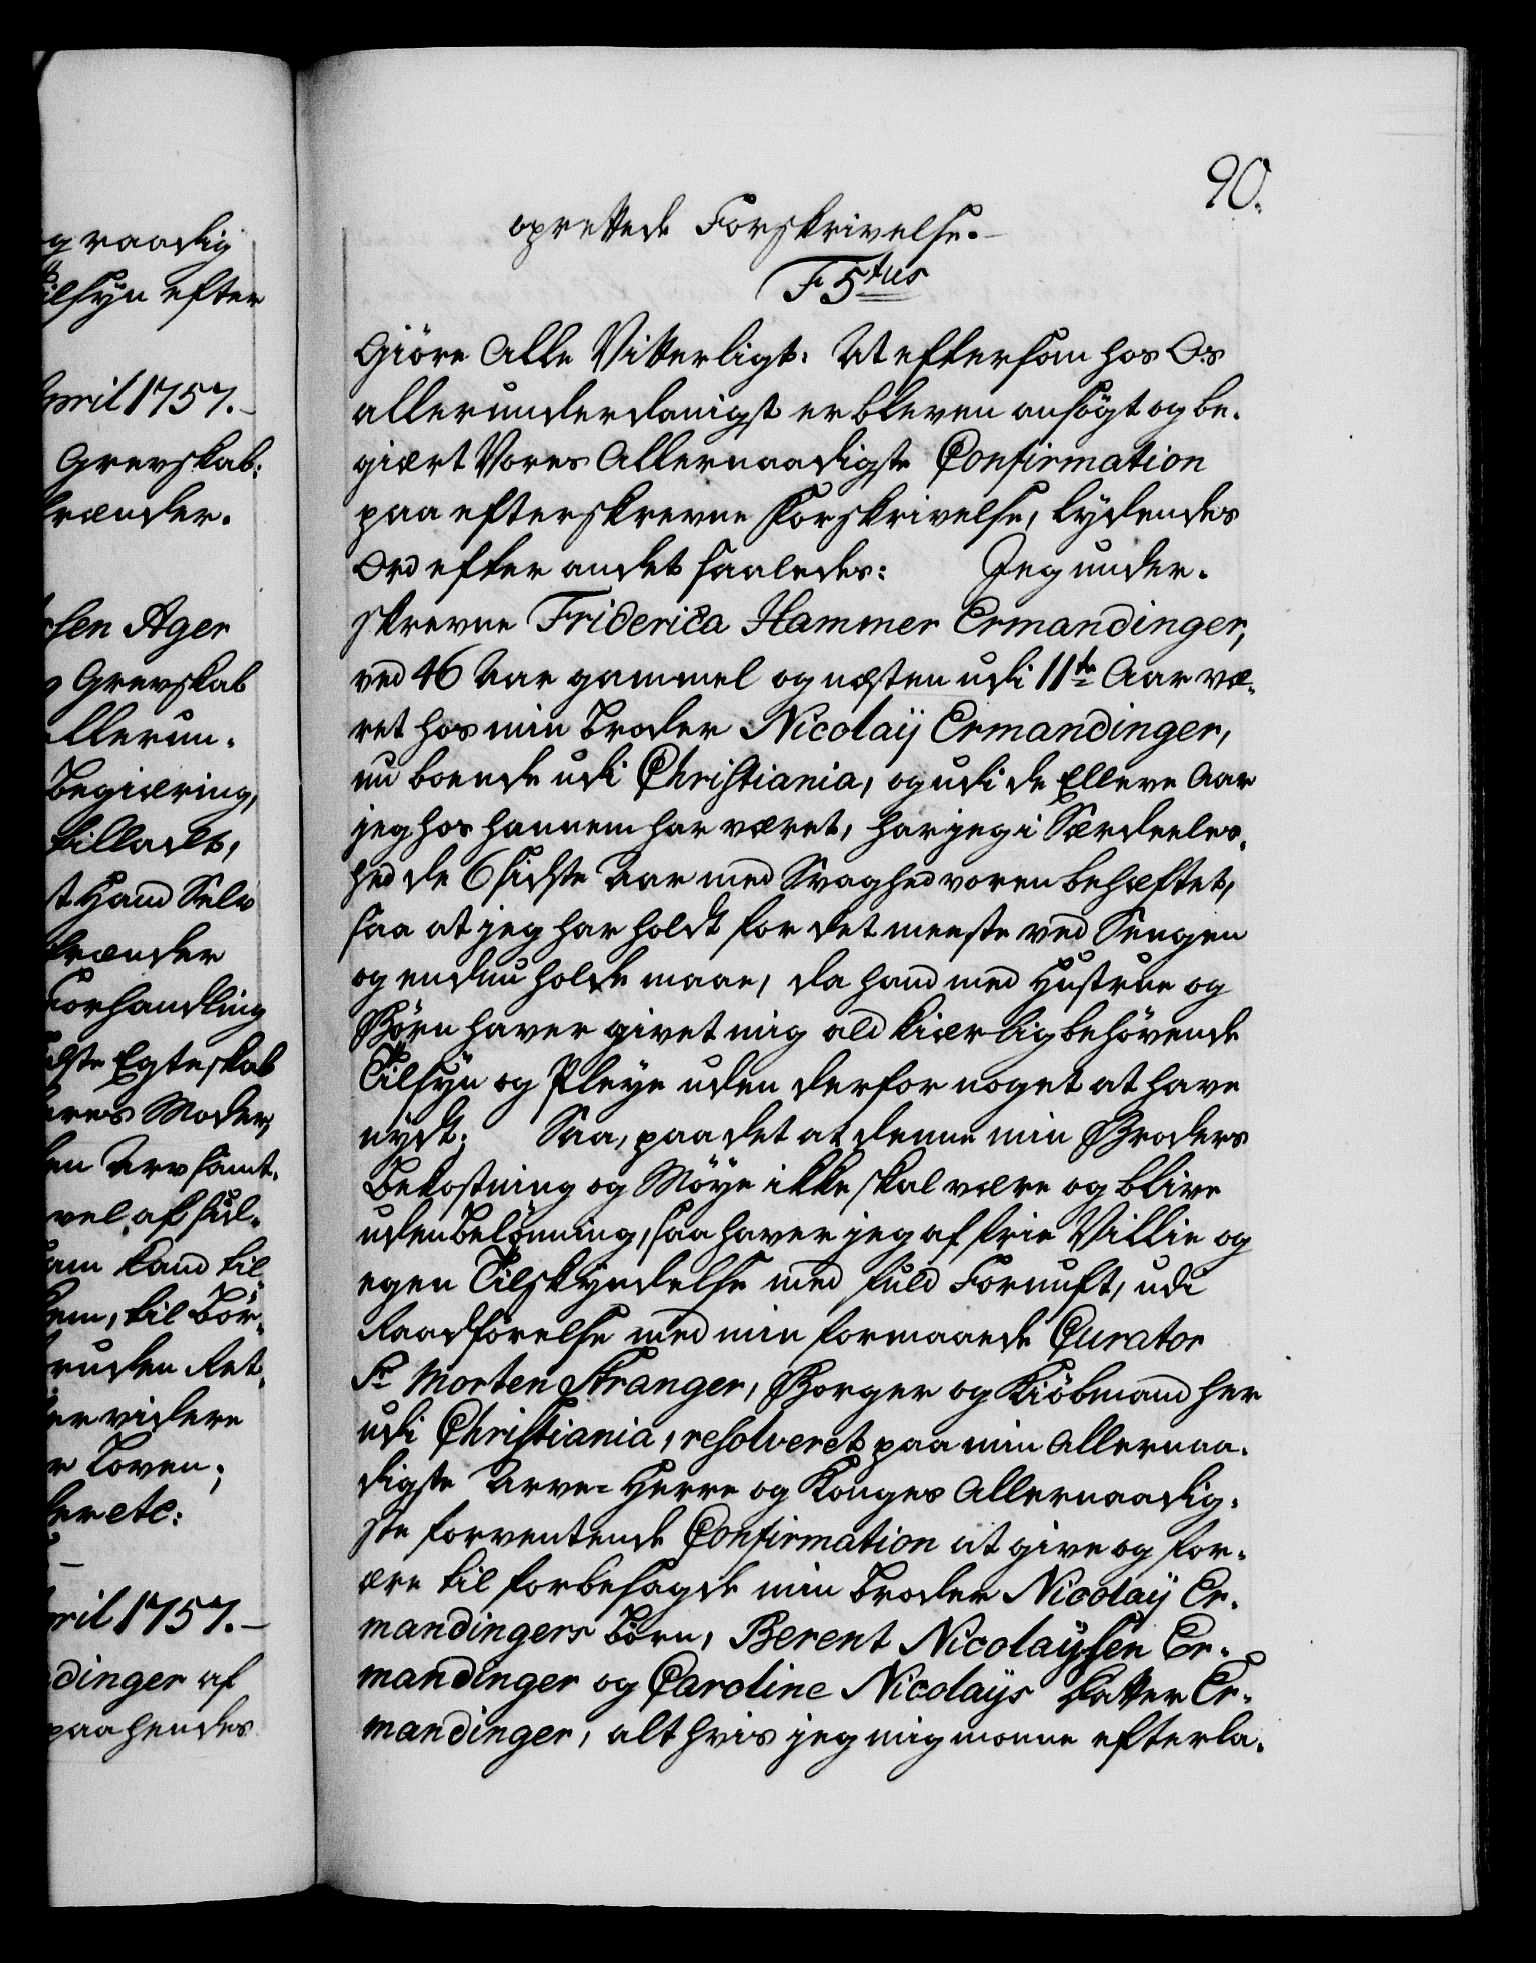 90.
oprettede Forskrivelse.
F 5tus
Giöre Alle Vitterligt: At eftersom hos Os
allerunderdanigst er bleven ansögt og be-
giært Vores Allernaadigste Confirmation
paa efterskrevne Forskrivelse, lydendes
Ord efter andet saaledes: Jeg under-
skrevne Friderica Hammer Ermandinger,
ved 46 Aar gammel og næsten udi 11te Aar væ-
ret hos min Broder Nicolaÿ Ermandinger,
nu boende udi Christiania, og udi de Elleve Aar
jeg hos hannem har været, har jeg i Særdeeles-
hed de 6 sidste Aar med Svaghed voren behæftet,
saa at jeg har holdt for det meeste ved Sengen
og endnu holde maae, da hand med Hustrue og
Börn haver givet mig ald kiærlig behövende
Tilsyn og Pleye uden derfor noget at have
nydt; Saa, paa det at denne min Broders
Bekostning og Möye ikke skal være og blive
uden Belönning, saa haver jeg af frie Villie og
egen Tilskyndelse med fuld Fornuft, udi
Raadförelse med min formaaede Curator
Sr Morten Stranger, Borger og Kiöbmand her
udi Christiania, resolveret paa min Allernaa-
digste Arve-Herre og Konges Allernaadig-
ste forventende Confirmation at give og for-
ære til forbesagde min Broder Nicolaÿ Er-
mandingers Börn, Berent Nicolaÿsen Er-
mandinger og Caroline Nicolaÿs Datter Er-
mandinger, alt hvis jeg mig monne efterla-
g raadig
ilsyn efter
April 1757.-
Grevskab:
rænder.
sen Ager
Grevskab
llerun-
Begiæring,
tilladt,
st Hand Selv
rænder
Forhandling
dste Egteskab
eres Moder,
en Arv samt-
vel af ful-
am kand til-
em, til Bör-
ruden Ret-
er videre
r Loven;
er etc:
ril 1757.-
dinger af
paa hendes